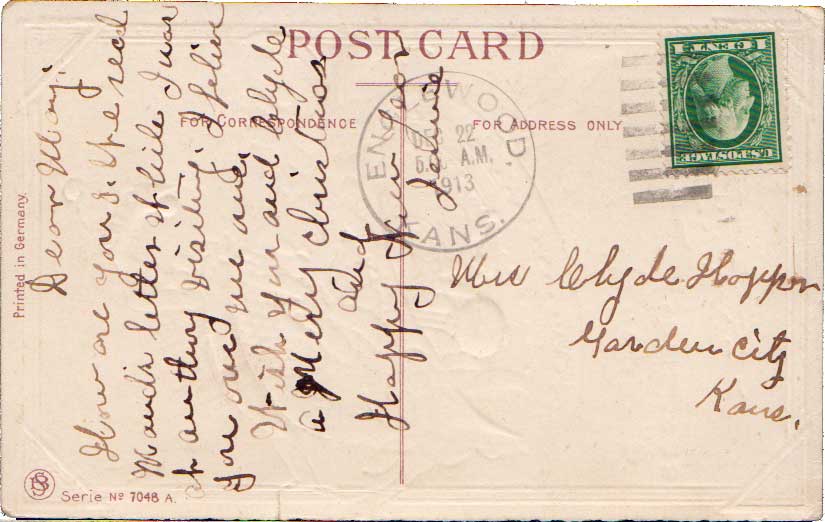 POST CARD
FOR CORRESPONDENCE
FOR ADDRESS ONLY
Printed in Germany
Serie No 7048 A.
ENGLEWOOD,
DEC 22
A.M.
1913
KANS.
U.S. POSTAGE
1 CENT 1
Dear May,
How are you & the rest
letter while I was
at aunthy visiting. I belive
you owe me one,
Wish you and Clyde
a Merry Christmas
and
Happy New Year
Mrs Clyde Hopper
Garden City
Kans.